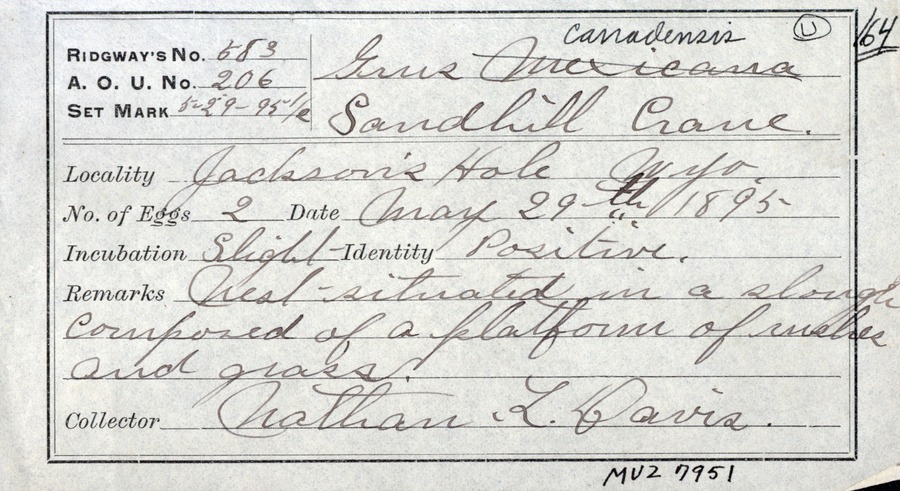 canadensis U 164
RIDGWAY'S No. 583
Grus Mexicana
A. O. U. No. 206
SET MARK 5-29-95 1/2
Sandhill Crane.
Locality Jackson's Hole Wyo.
No. of Eggs 2 Date May 29th 1895
Incubation Slight Identity Positive.
Remarks Nest situated in a slough
composed of a platform of rushes
and grass.
Collector Nathan L. Davis.
MVZ 7951